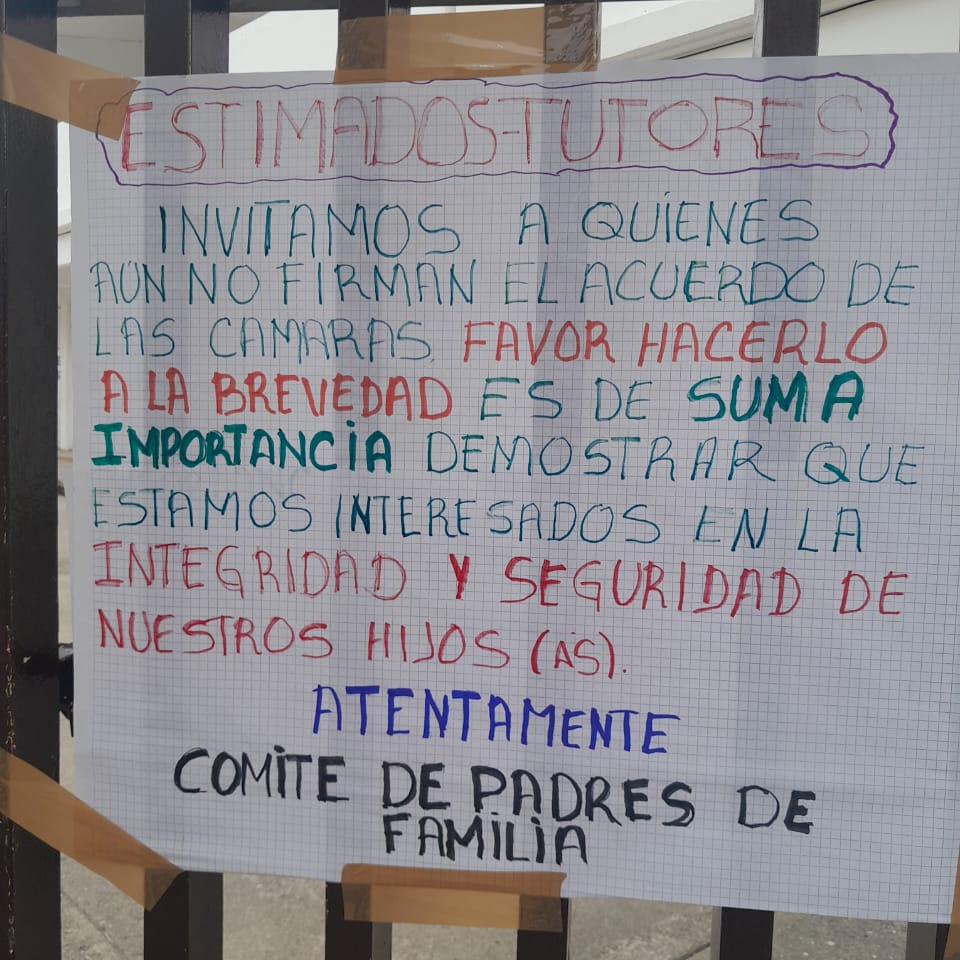 ESTIMADOS-TUTORES
INVITAMOS A QUIENES
AÚN NO FIRMAN EL ACUERDO DE
LAS CAMARAS. FAVOR HACERLO
A LA BREVEDAD ES DE SUMA
IMPORTANCIA DEMOSTRAR QUE
ESTAMOS INTERESADOS EN LA
INTEGRIDAD Y SEGURIDAD DE
NUESTROS HIJOS (AS).
ATENTAMENTE
COMITE DE PADRES DE
FAMILIA